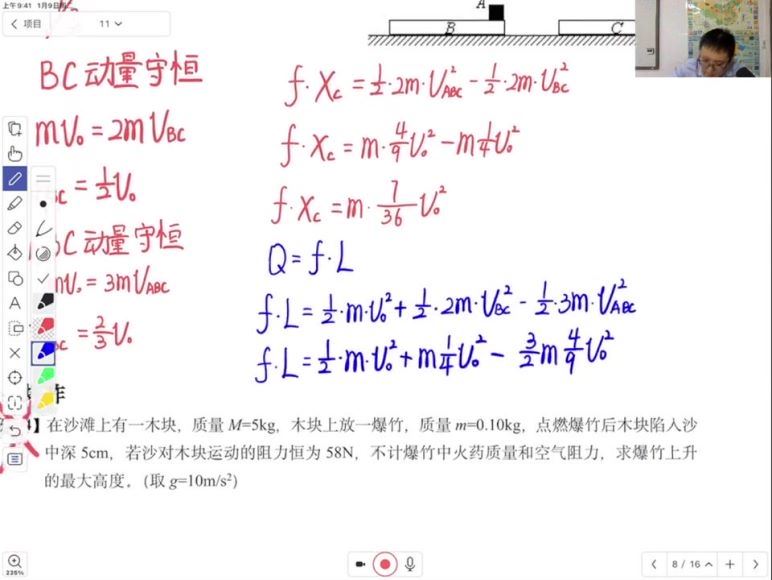 上午9:41 1月9日
项目
11
A
B
C
BC动量守恒
mv₀ = 2mv_BC
= ½v₀
BC动量守恒
mv₀ = 3mv_ABC
= ⅔v₀
f·X_c = ½·2m·v²_ABC - ½·2m·v²_BC
f·X_c = m·4/9v₀² - m¼v₀²
f·X_c = m·7/36v₀²
Q = f·L
f·L = ½·m·v₀² + ½·2m·v²_BC - ½·3m·v²_ABC
f·L = ½·m·v₀² + m¼v₀² - 3/2m4/9v₀²
作
】在沙滩上有一木块，质量 M=5kg，木块上放一爆竹，质量 m=0.10kg，点燃爆竹后木块陷入沙
中深 5cm，若沙对木块运动的阻力恒为 58N，不计爆竹中火药质量和空气阻力，求爆竹上升
的最大高度。(取 g=10m/s²)
235%
8 / 16